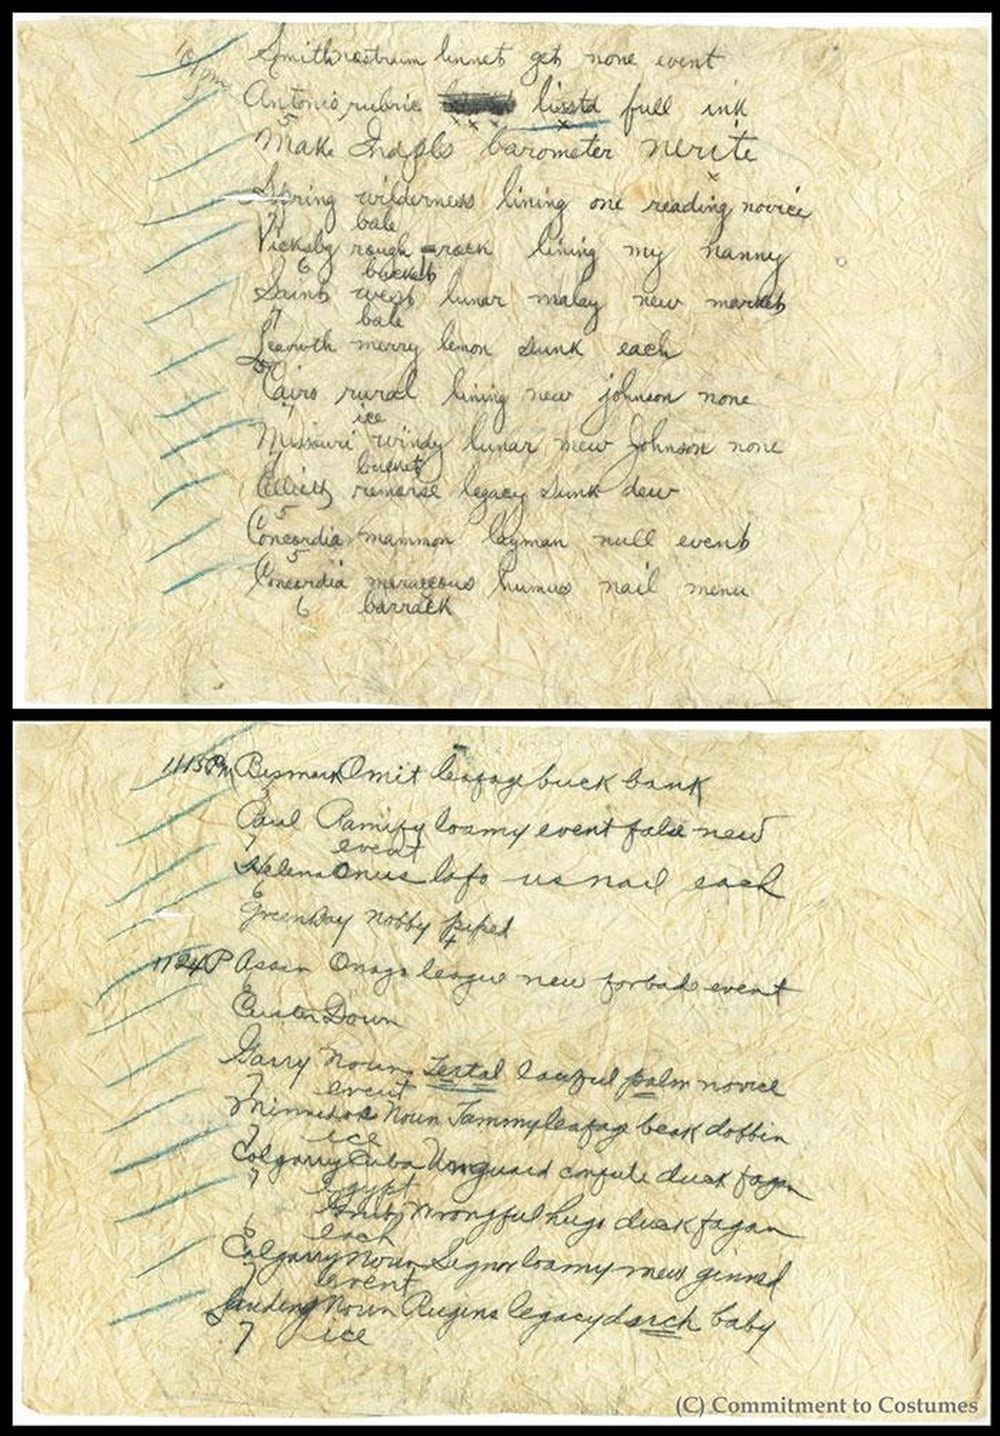 10pm Smith nostrum linnet get none event
Antonio rubric lisstd full ink
5
Make Indpls barometer nerite
Spring wilderness lining one reading novice
7 bale
Vicksbg rough rack lining my nanny
6 bucket
Saints west lunar malay new market
7 bale
Leavwth merry lemon sunk each
5
Cairo rural lining new johnson none
7 ice
Missouri windy lunar mew Johnson none
7 bucket
Elliott remorse legacy sunk dew
5
Concordia mammon layman null event
5
Concordia meraccous humus nail menu
6 barrack
1113PM Bismark Omit leafage buck bank
Paul Ramify loamy event false new
7 event
Helena Onus lofo us nail each
6
GreenBay nobby piped
4
1124P Assin Onago league new forbade event
Custer Down
Garry Noun Tertal lawful palm novice
7 event
Minnedos Noun Jammy leafage beak dobbin
7 ice
Calgarry Cuba Unguard confute duck fagan
7 Egypt
Grubs Wrongful hugo duck fagan
6 each
Calgarry Noun Signor loamy mew ginned
7 event
Landing Noun Rugins legacy darch baby
7 ice
(C) Commitment to Costumes